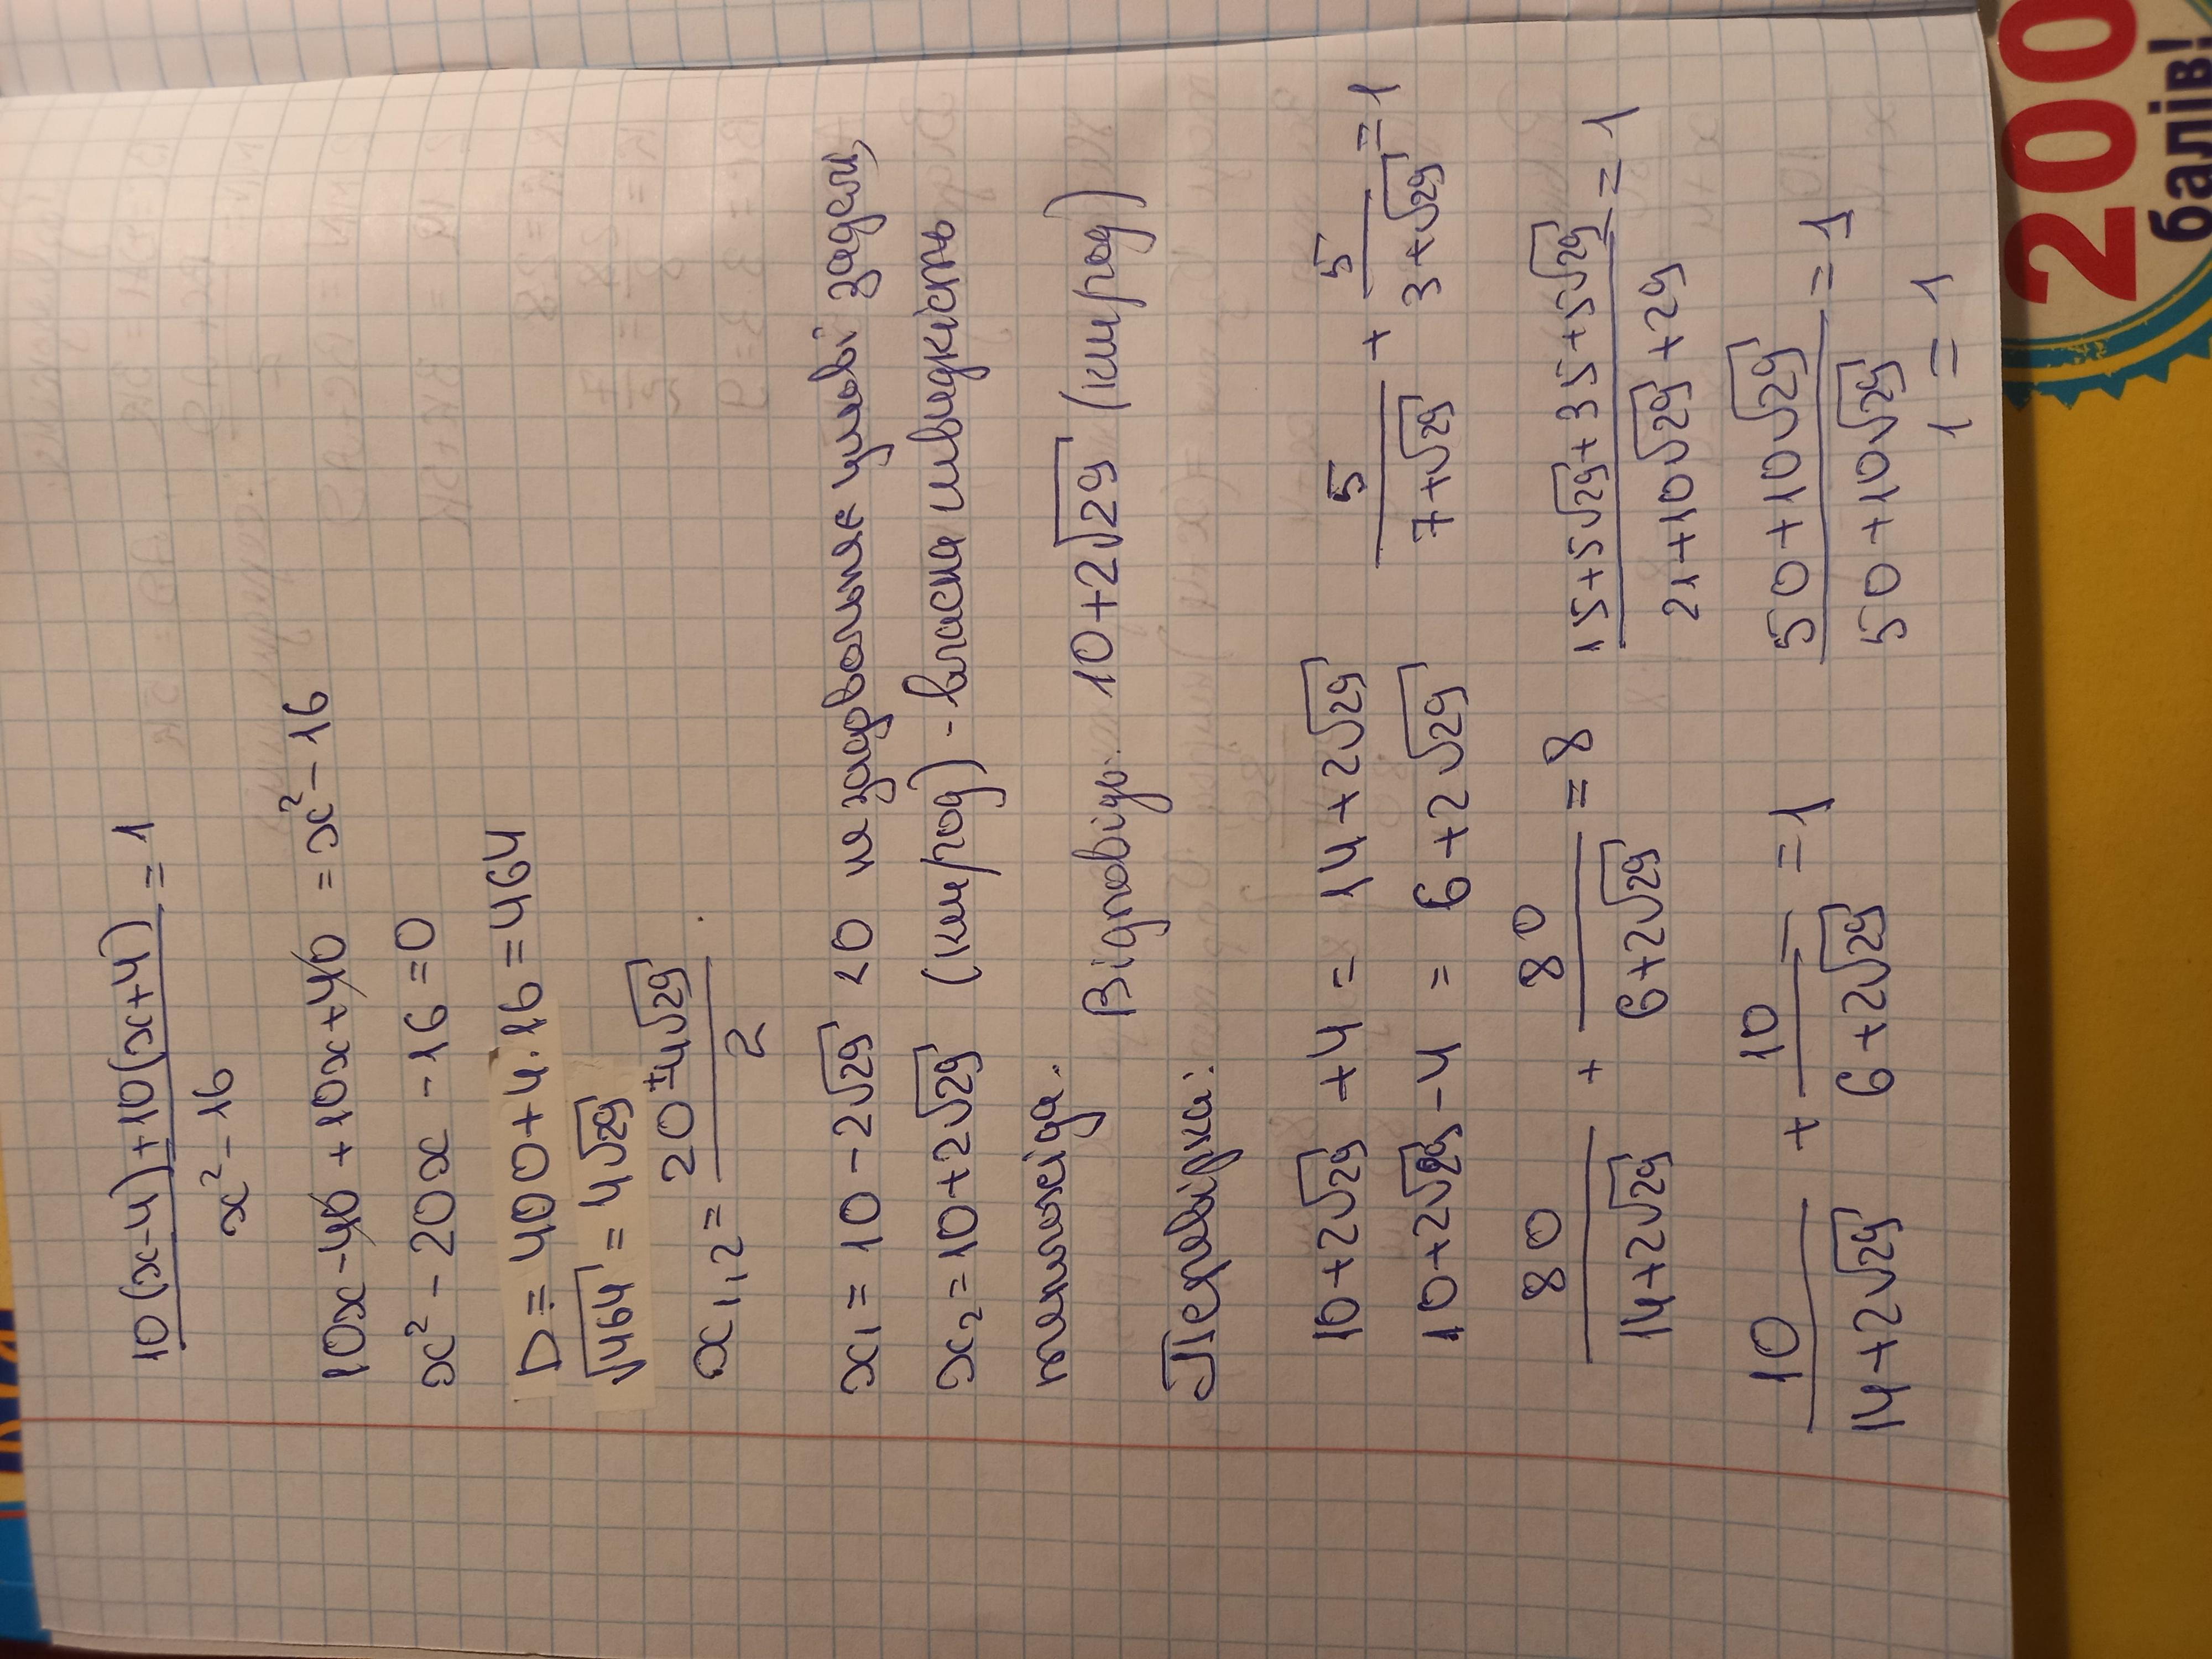 10(x-4)+10(x+4) = 1
x² - 16
10x - 40 + 10x + 40 = x² - 16
x² - 20x - 16 = 0
D = 400 + 4·16 = 464
√464 = 4√29
x₁,₂ = 20 ± 4√29
2
x₁ = 10 - 2√29 < 0 не задовольняє умові задачі,
x₂ = 10 + 2√29 (км/год) - власна швидкість
теплохода.
Відповідь: 10 + 2√29 (км/год)
Перевірка:
10 + 2√29 + 4 = 14 + 2√29
10 + 2√29 - 4 = 6 + 2√29
80 + 80 = 8
14 + 2√29 6 + 2√29
10 + 10 = 1
14 + 2√29 6 + 2√29
5 + 5 = 1
7 + √29 3 + √29
15 + 5√29 + 35 + 5√29 = 1
21 + 10√29 + 29
50 + 10√29 = 1
50 + 10√29
1 = 1
200
балів!